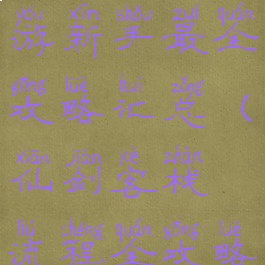 yóu xīn shǒu zuì quán
游新手最全
gōng lüè huì zǒng
攻略汇总（
xiān jiàn kè zhàn
仙剑客栈
liú chéng quán gōng lüè
流程全攻略